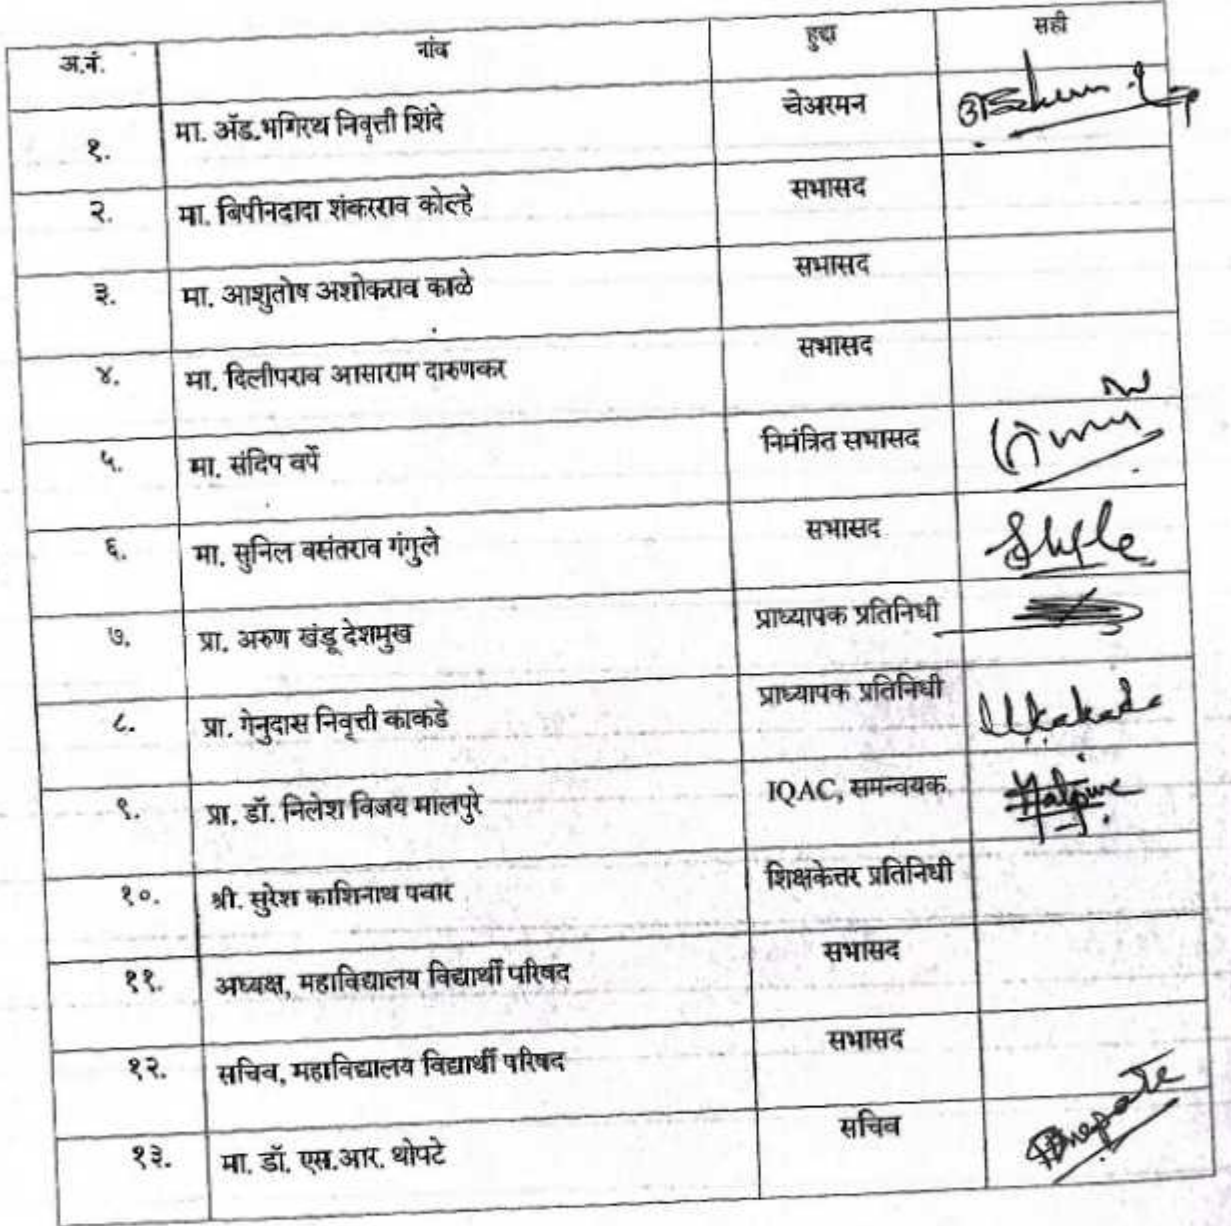 अ.नं. नांव हुद्दा सही
१. मा. ॲड.भगिरथ निवृत्ती शिंदे चेअरमन
२. मा. बिपीनदादा शंकरराव कोल्हे सभासद
३. मा. आशुतोष अशोकराव काळे सभासद
४. मा. दिलीपराव आसाराम दारुणकर सभासद
५. मा. संदिप वर्पे निमंत्रित सभासद
६. मा. सुनिल वसंतराव गंगुले सभासद
७. प्रा. अरुण खंडू देशमुख प्राध्यापक प्रतिनिधी
८. प्रा. गेनुदास निवृत्ती काकडे प्राध्यापक प्रतिनिधी
९. प्रा. डॉ. निलेश विजय मालपुरे IQAC, समन्वयक
१०. श्री. सुरेश काशिनाथ पवार शिक्षकेत्तर प्रतिनिधी
११. अध्यक्ष, महाविद्यालय विद्यार्थी परिषद सभासद
१२. सचिव, महाविद्यालय विद्यार्थी परिषद सभासद
१३. मा. डॉ. एस.आर. थोपटे सचिव